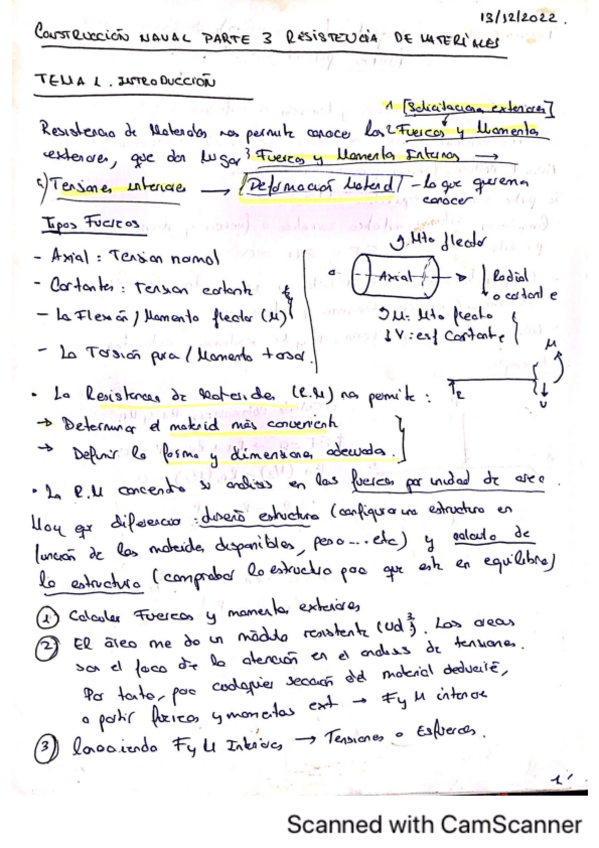 13/12/2022.
CONSTRUCCIÓN NAVAL PARTE 3 RESISTENCIA DE MATERIALES
TEMA 1. INTRODUCCIÓN
1 [Solicitaciones exteriores]
Resistencia de Materiales nos permite conocer las 2 Fuerzas y Momentos
exteriores, que dan lugar 3 Fuerzas y Momentos Internos →
Tensiones interiores → Deformación Material - lo que queremos
conocer
Tipos Fuerzas
Mto flector
- Axial : Tensión normal
Axial
Radial
o cortante
- Cortantes : Tensión cortante
- La Flexión / Momento flector (M)
M: Mto flector
V: esf Cortante
- La Torsión pura / Momento torsor.
M
V
• La Resistencia de Materiales (R.M) nos permite :
→ Determinar el material más conveniente
→ Definir la forma y dimensiones adecuadas.
• La R.M concentra su análisis en las fuerzas por unidad de area.
Hay que diferenciar : diseño estructura (configurar una estructura en
función de los materiales disponibles, peso ... etc) y calculo de
la estructura (comprobar la estructura para que este en equilibrio)
1 Calcular Fuerzas y momentos exteriores
2 El área me da un módulo resistente (Ud³). Las areas
son el foco de la atención en el análisis de tensiones.
Por tanto, para cualquier sección del material deduciré,
a partir fuerzas y momentos ext → F y M internos
3 Conociendo F y M Internos → Tensiones o Esfuerzos.
1
Scanned with CamScanner